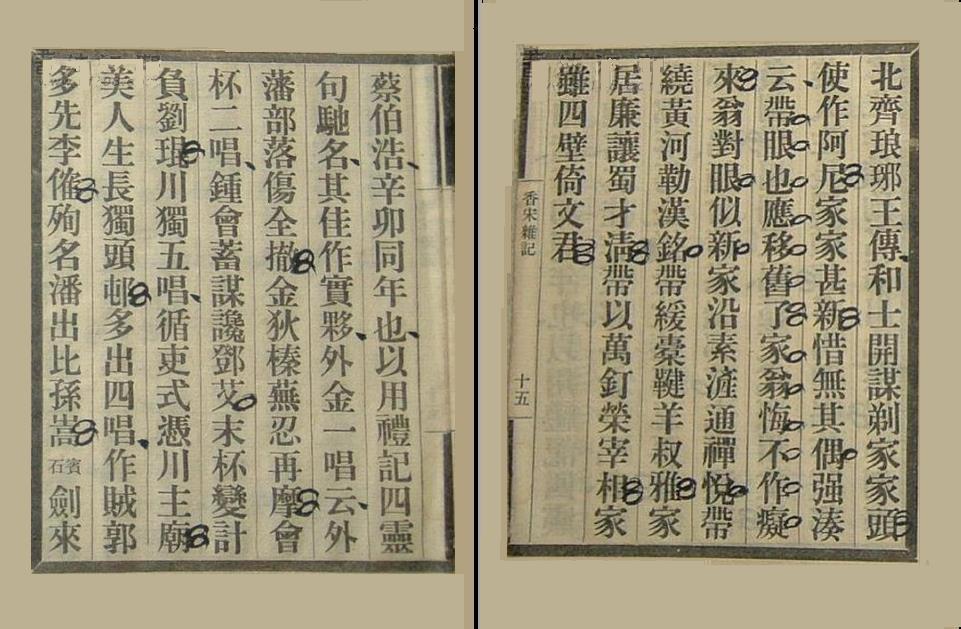 北齊琅琊王傳和士開謀剃家家頭
使作阿尼家家甚新惜無其偶强湊
云帶眼也應移舊了家翁悔不作癡
來翁對眼似新家沿素滻通禪悅帶
繞黃河勒漢銘帶緩橐鞬羊叔雅家
居廉讓蜀才淸帶以萬釘榮宰相家
雖四壁倚文君
香宋雜記
十五
蔡伯浩辛卯同年也以用禮記四靈
句馳名其佳作實夥外金一唱云外
藩部落傷全撤金狄榛蕪忍再摩會
杯二唱鍾會蓄謀讒鄧艾末杯變計
負劉琨川獨五唱循吏式憑川主廟
美人生長獨頭邨多出四唱作賊郭
多先李傕殉名潘出比孫嵩賓石劍來